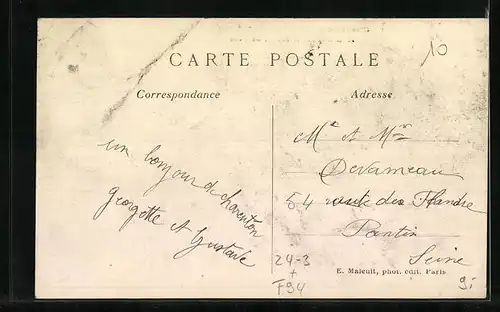 10
CARTE POSTALE
Correspondance
Adresse
un bonjour de charenton
georgette et Gustave
Mr et Mme
Devameau
54 route des Flandre
Pantin
Seine
24-3
+
F94
E. Maleuit, phot. édit. Paris